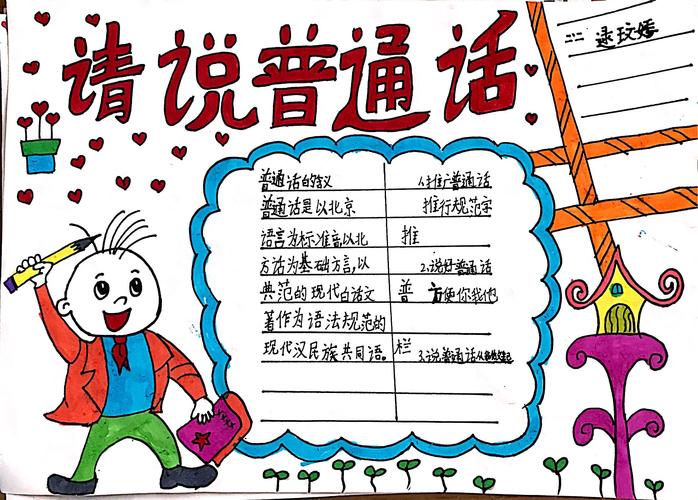 请说普通话
二二
普通话的含义
普通话是以北京
语言为标准音,以北
方话为基础方言,以
典范的现代白话文
著作为语法规范的
现代汉民族共同语。
推
普
栏
1.推广普通话
推行规范字
2.说好普通话
方便你我他
3.说普通话从